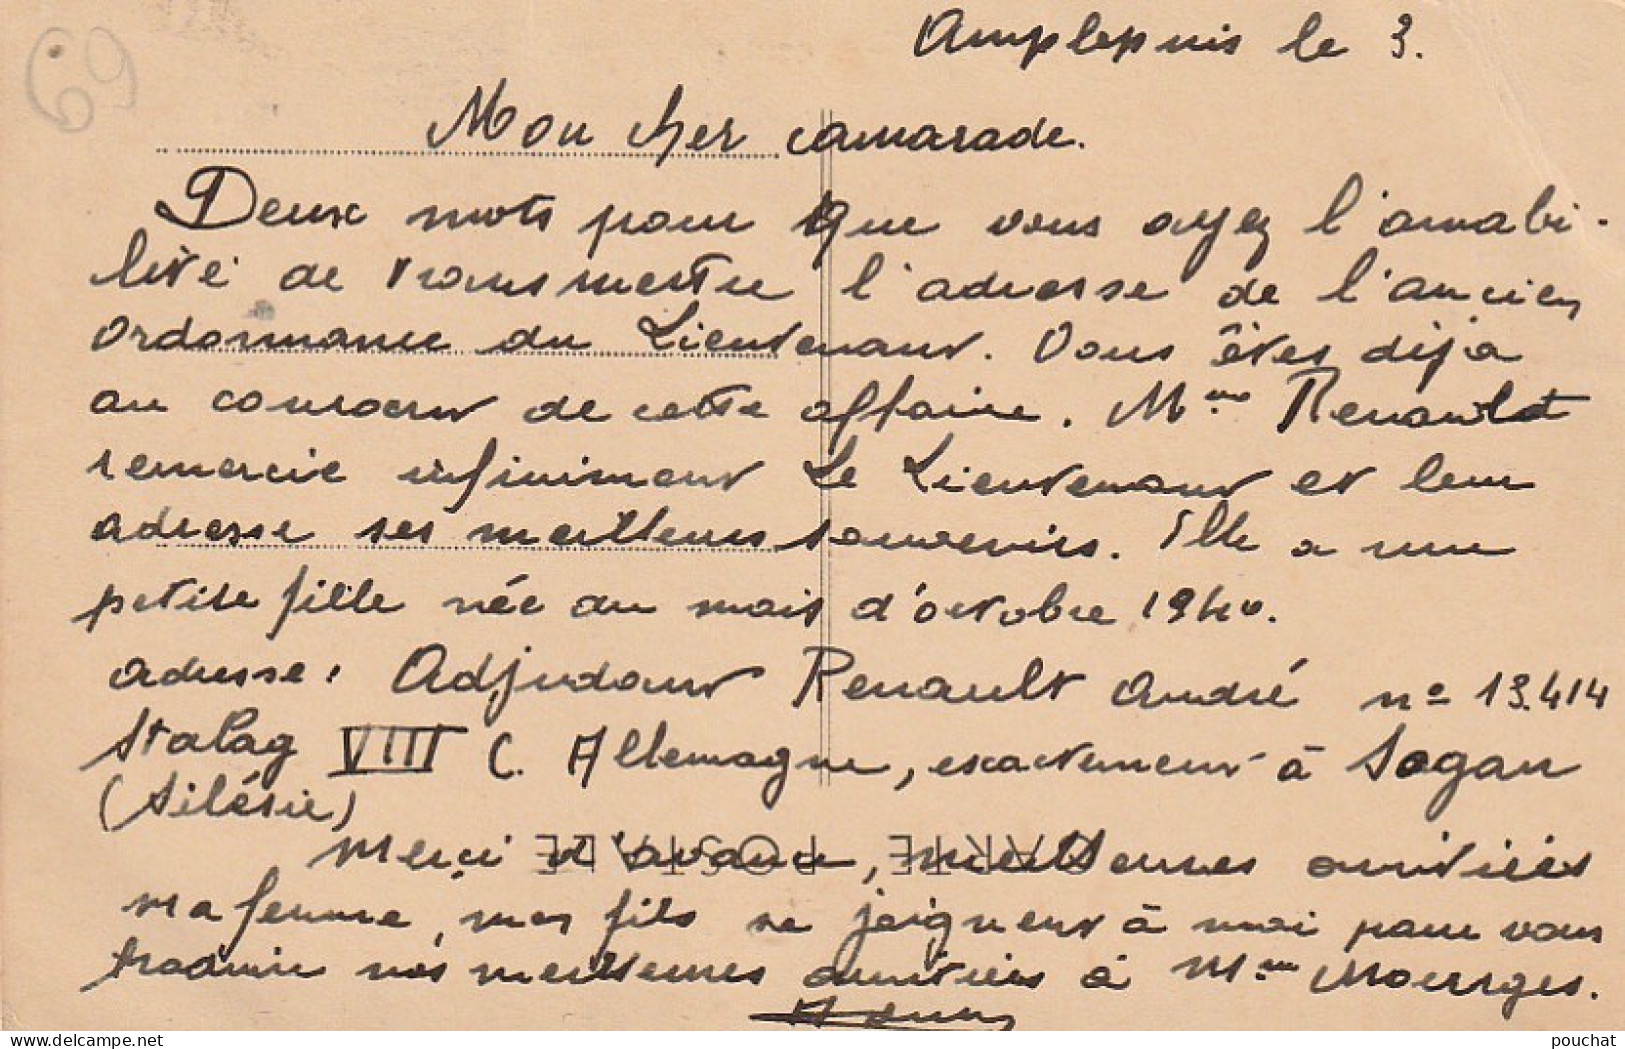 69
Amplepuis le 3.
Mon cher camarade.
Deux mots pour que vous ayez l'amabi-
lité de transmettre l'adresse de l'ancien
ordonnance du Lieutenant. Vous êtes déjà
au courant de cette affaire. Mme Renault
remercie infiniment Le Lieutenant et leur
adresse ses meilleurs souvenirs. Elle a une
petite fille née au mois d'octobre 1940.
adresse: Adjudant Renault André no 13.414
Stalag VIII C. Allemagne, exactement à Sagan
(Silésie)
CARTE POSTALE
Merci d'avance, meilleures amitiés
Ma femme, mes fils se joignent à moi pour vous
traduire nos meilleures amitiés à Mme
delcampe.net
pouchat